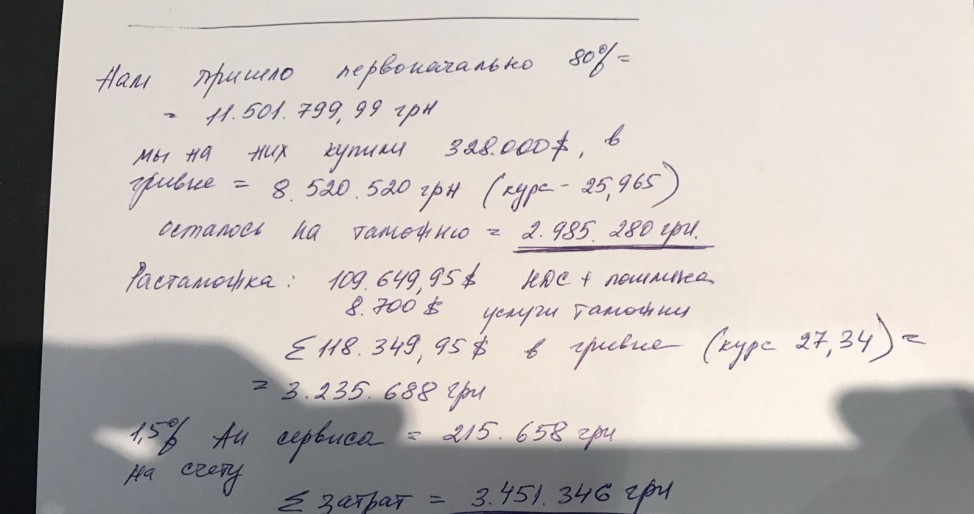 Нам пришло первоначально 80% =
= 11.501.799,99 грн
мы на них купили 328.000$, в
гривне = 8.520.520 грн (курс - 25,965)
осталось на таможню = 2.985.280 грн.
Растаможка: 109.649,95$ НДС + пошлина
8.700$ услуги таможни
Σ 118.349,95$ в гривне (курс 27,34) =
= 3.235.688 грн
1,5% Ан сервиса = 215.658 грн
на счету
Σ затрат = 3.451.346 грн